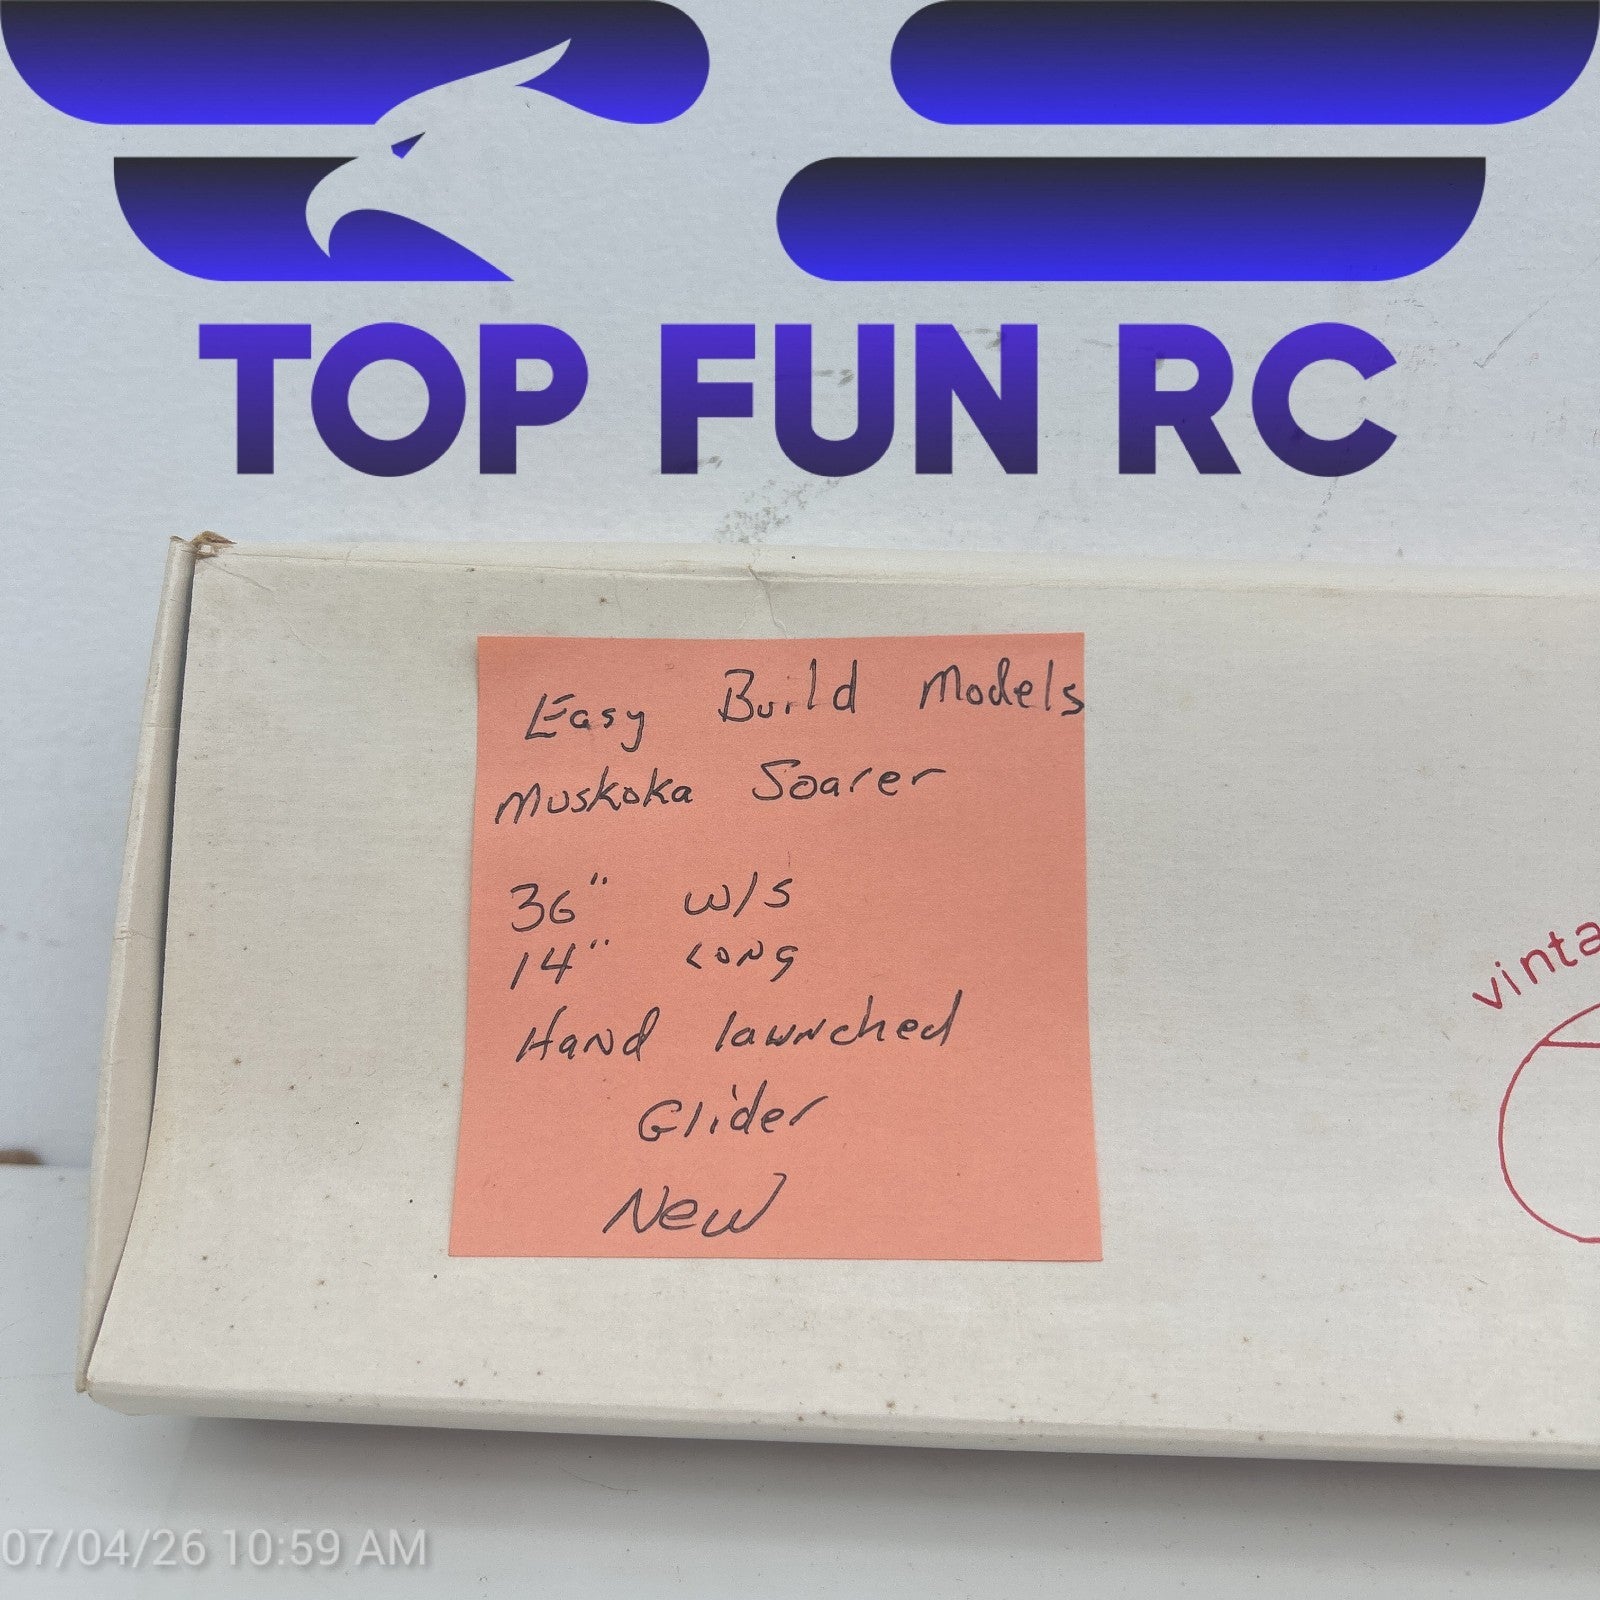 TOP FUN RC
Easy Build Models
Muskoka Soarer
36" w/s
14" LONG
Hand lawnched
Glider
New
vinta
07/04/26 10:59 AM